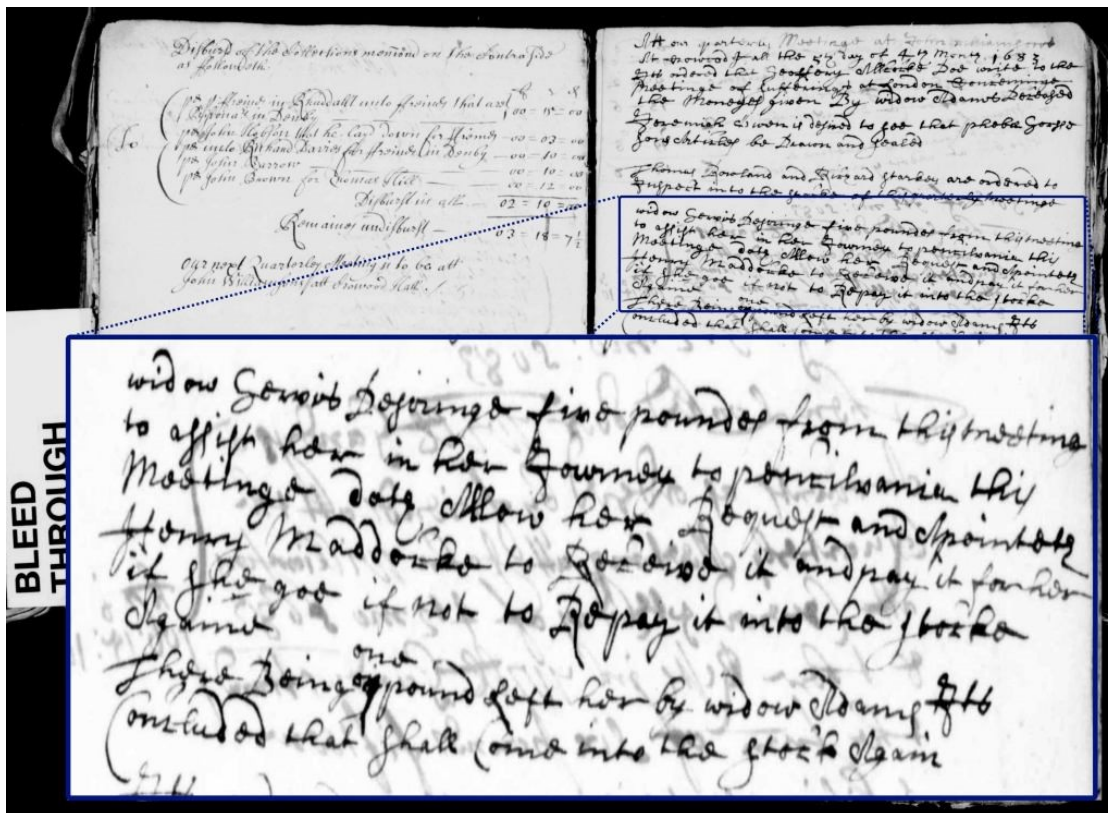 Disburst of the Collections mentiond on the Contra side
as followeth.
pd ffreinds in Randall unto ffreinds that are
in Denby 00 = 15 = 00
pd John Hobson that he layd down for ffreinds 00 = 03 = 00
pd unto Richard Davies for ffreinds in Denby — 00 = 10 = 00
pd John Barrow — 00 = 10 = 00
pd John Brown for Thomas Hill — 00 = 12 = 00
Disburst in all — 02 = 10 = 00
Remaines undisburst — 03 = 18 = 7½
Our next Quarterley Meeting is to be att
John Williamsons att Crowood Hall
Att our quarterly Meeting at John Williamsons
At Crowood hall the day of 4th Month 1683
Its ordered that Geoffery Allcocke Doe write to the
Meetinge of sufferings at London Concerninge
the Moneyes given By widow Adams Deceased
Jeremiah Owen is desired to see that pheba
Articles be Drawn and Sealed
Thomas Rowland and Richard Starkey are ordered to
Inspect into the stocke of the quarterly Meetinge
widow Gervis Desiringe five poundes from this meetinge
to assist her in her Journey to pencilvania this
Meetinge doth Allow her Request and Apointeth
Henry Maddocke to Receive it and pay it for her
if she goe if not to Repay it into the stocke
Againe
There Being one pound left her by widow Adams Its
Concluded that shall Come into the
BLEED
THROUGH
widow Gervis Desiringe five poundes from this meetinge
to assist her in her Journey to pencilvania this
Meetinge doth Allow her Request and Apointeth
Henry Maddocke to Receive it and pay it for her
if she goe if not to Repay it into the stocke
Againe
There Being one pound left her by widow Adams Its
Concluded that shall Come into the stock Again